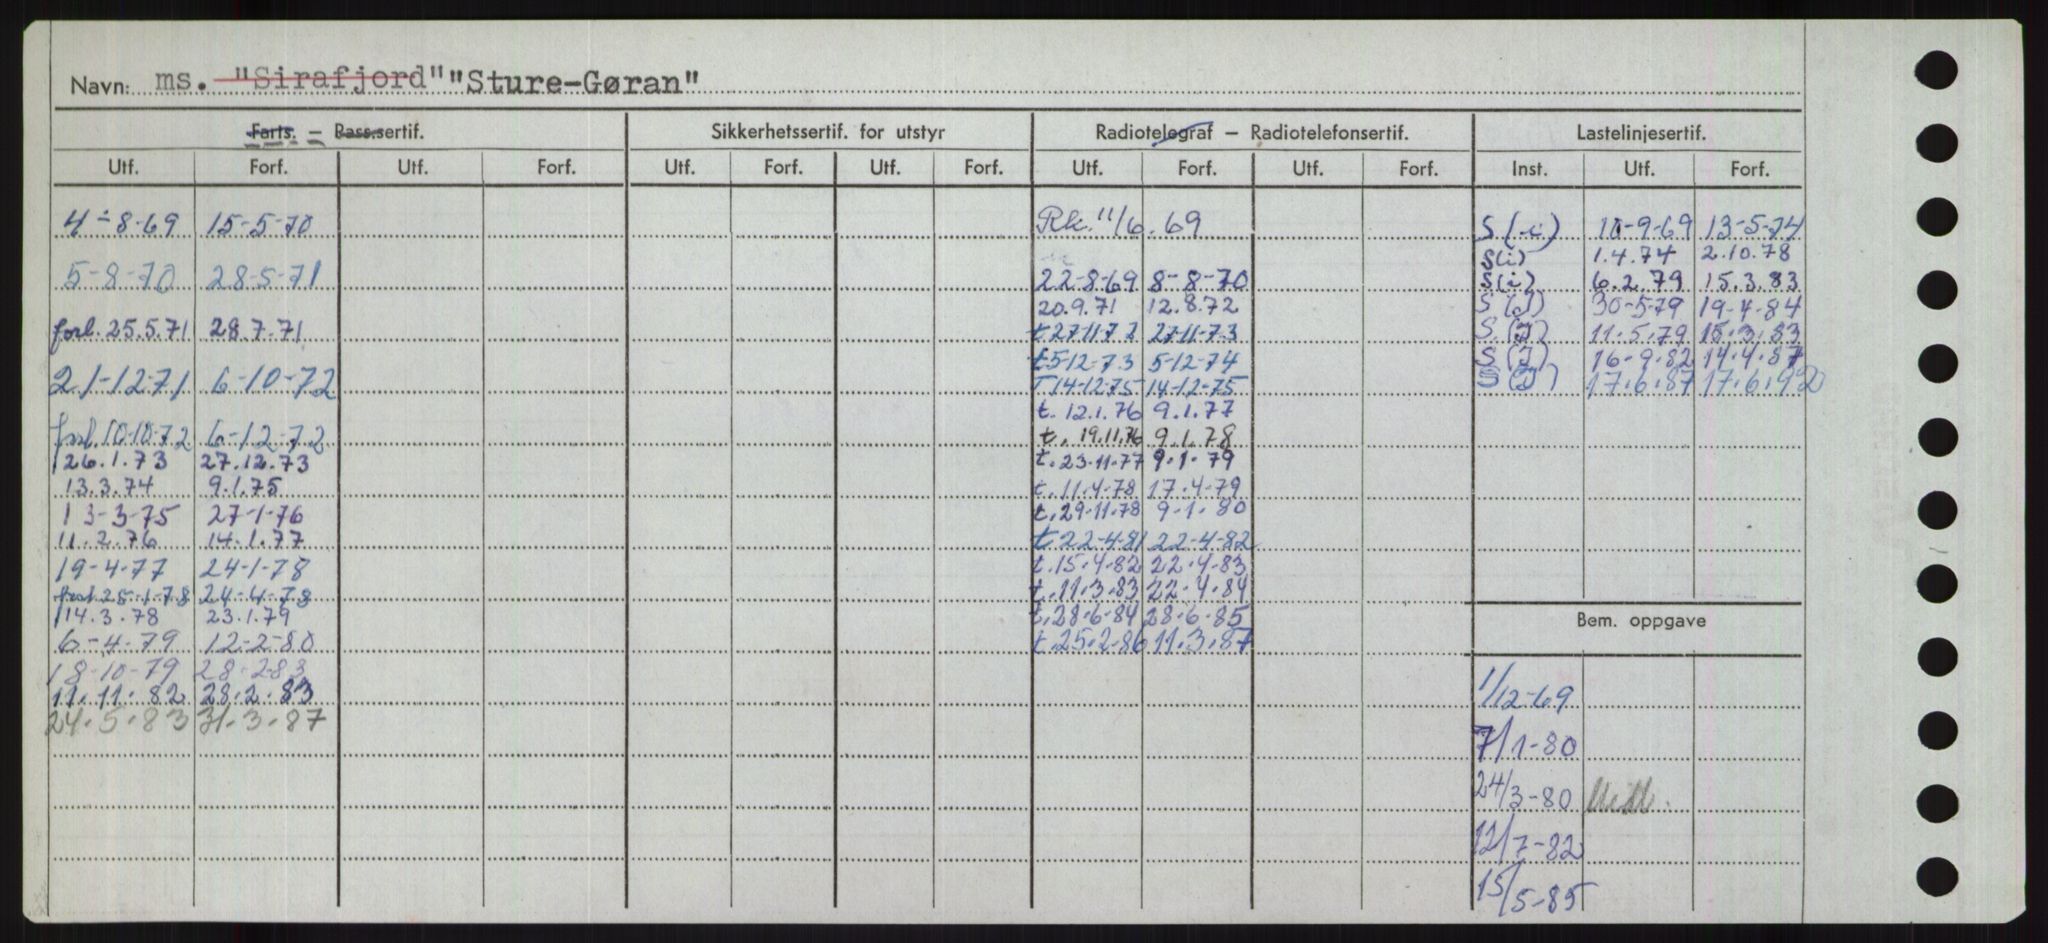 Navn: ms. "Sirafjord" "Sture-Gøran"
Farts. – Pass.sertif. Sikkerhetssertif. for utstyr Radiotelegraf – Radiotelefonsertif. Lastelinjesertif.
Utf. Forf. Utf. Forf. Utf. Forf. Utf. Forf. Utf. Forf. Utf. Forf. Inst. Utf. Forf.
4-8-69 15-5-70
5-8-70 28-5-71
forl. 25.5.71 28.7.71
21-12-71 6-10-72
forl. 10-10-72 6-12-72
26.1.73 27.12.73
13.3.74 9.1.75
13-3-75 27-1-76
11.2.76 14.1.77
19-4-77 24-1-78
forl. 25-1-78 24-4-78
14.3.78 23.1.79
6-4-79 12-2-80
18-10-79 28-2-83
11.11.82 28.2.83
24.5.83 31.3.87
Rk. 11/6.69
22-8-69 8-8-70
20.9.71 12.8.72
t 27-11-72 27-11-73
t 5-12-73 5-12-74
T 14-12-75 14-12-75
t. 12.1.76 9.1.77
t. 19.11.76 9.1.78
t. 23-11-77 9.1.79
t. 11.4.78 17.4.79
t. 29.11.78 9.1.80
t 22-4-81 22-4-82
t. 15.4.82 22.4.83
t. 11.3.83 22.4.84
t. 28.6.84 28.6.85
t. 25.2.86 11.3.87
S (i) 10-9-69 13-5-74
S(i) 1.4.74 2.10.78
S(i) 6.2.79 15.3.83
S (J) 30-5-79 19-4-84
S (J) 11.5.79 15.3.83
S (J) 16.9.82 14.4.87
S (J) 17.6.87 17.6.92
Bem. oppgave
1/12-69
7/1-80
24/3-80
12/7-82
15/5-85